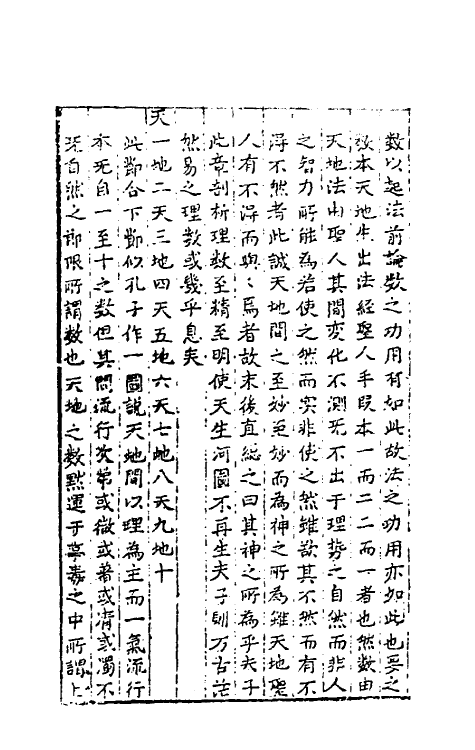 數以起法前論數之功用有如此故法之功用亦如此也要之
數本天地生出法經聖人手段本一而二二而一者也然數由
天地法由聖人其間変化不測旡不出于理势之自然而非人
之智力所能為若使之然而实非使之然雖欲其不然而有不
淂不然者此誠天地間之至妙至妙而為神之所為雖天地聖
人有不淂而與〻焉者故末後直総之曰其神之所為乎夫子
此章剖析理數至精至明使天生河圖不再生夫子則万古法
然易之理数或幾乎息矣
天一地二天三地四天五地六天七地八天九地十
此節合下節似孔子作一圖說天地間以理為主而一氣流行
本旡自一至十之数但其間流行次第或微或著或清或濁不
旡自然之節限所謂数也天地之数默運于冥漠之中所謂上